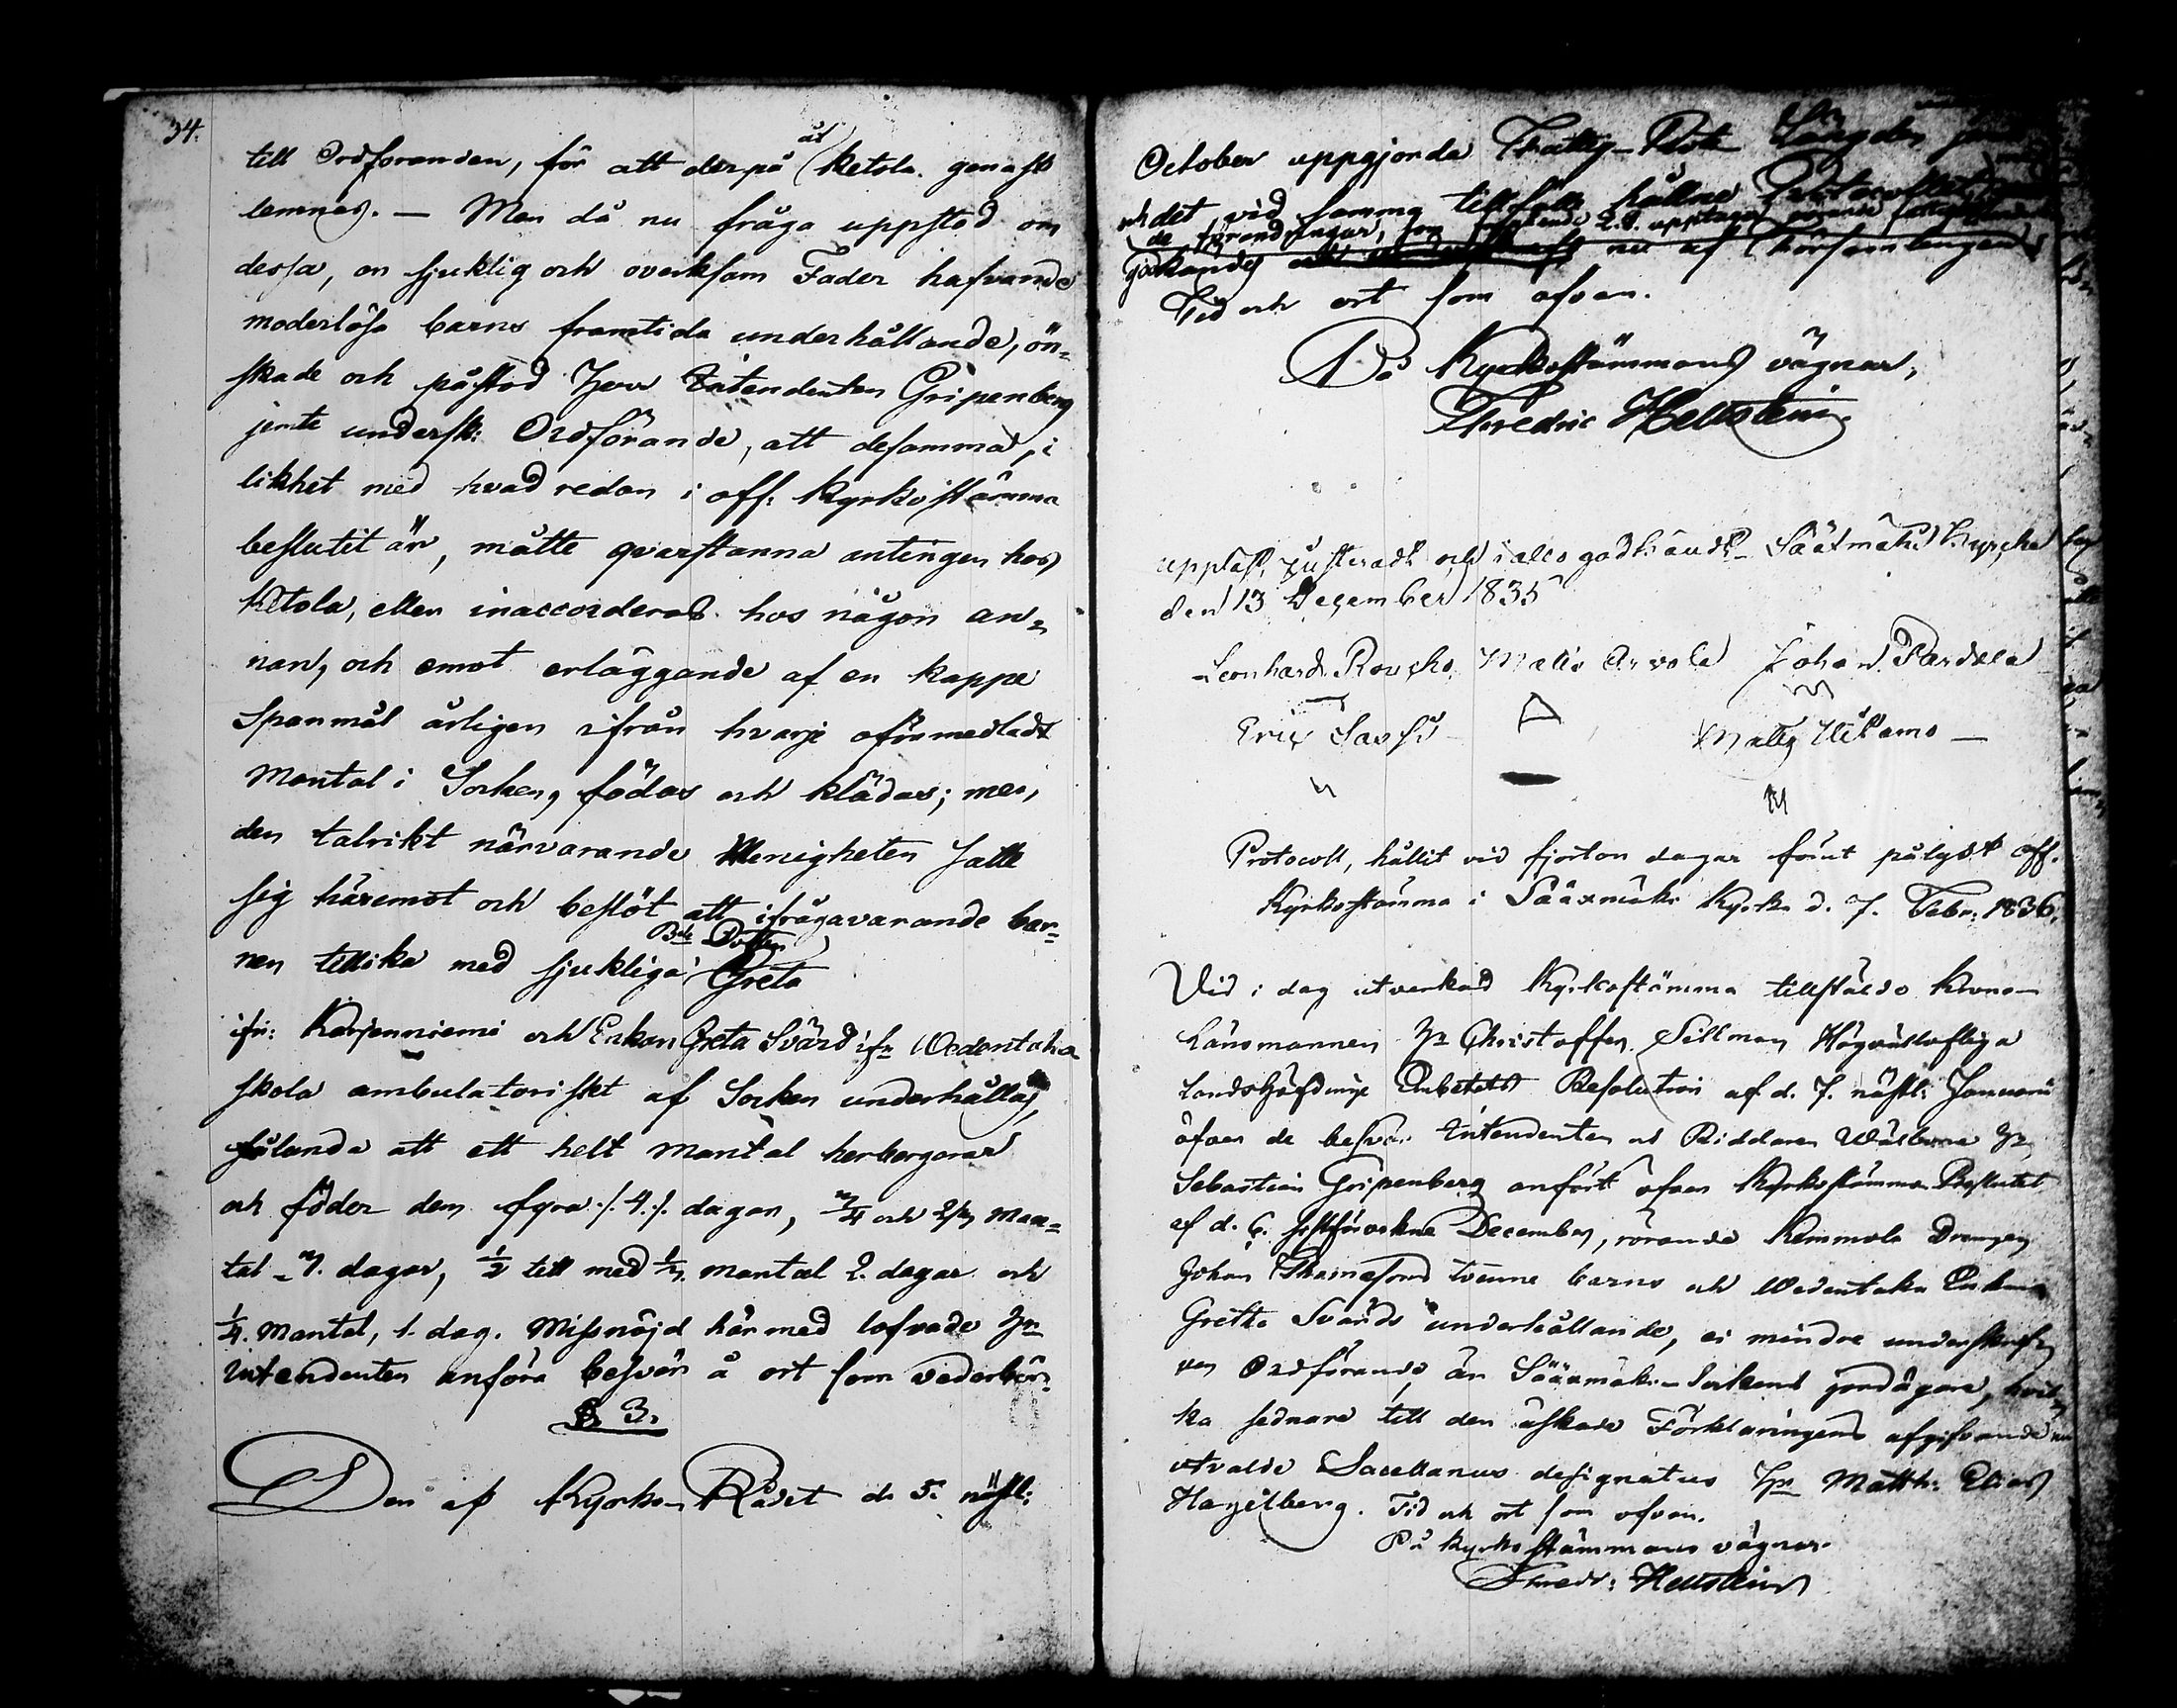 34.
till Ordföranden, för att derpå åt Ketola genast
lemnas. — Men då nu fråga uppstod om
dessa, en sjuklig och overksam Fader hafvande
moderlösa barns framtida underhållande, ön-
skade och påstod Herr Intendenten Gripenberg
jemte undersk: Ordförande, att desamma, i
likhet med hvad redan i off: Kyrkostämma
beslutit är, måtte qvarstanna antingen hos
Ketola, eller inaccorderas hos någon an-
nan, och emot erläggande af en kappe
Spanmål årligen ifrån hvarje oförmedladt
Mantal i Socken, födas och klädas; men
den talrikt närvarande Menigheten satte
sig häremot och beslöt att ifrågavarande bar-
nen tillika med sjukliga Bde Dottren Greta
ifr: Karjenniemi och Enkan Greta Svärd ifr Wedentaka
skola ambulatoriskt af Socken underhållas,
sålunda att ett helt Mantal herbergerar
och föder dem fyra ./. 4 ./. dagar, 3/4 och 2/3 Man-
tal 3. dagar, 1/2 till med 1/3 mantal 2. dagar och
1/4. Mantal, 1. dag. Missnöjd härmed lofvade Hr
Intendenten anföra besvär å ort som vederbör.
§ 3.
Den af Kyrko-Rådet d. 5. nästl:
October uppgjorda Fattig-Rote Längden
och det vid samma tillfälle hållne Protocollet
de förändringar, som upptager
godkändes nu af Församlingen
Tid och ort som ofvan.
På Kyrkostämmans vägnar,
Fredric Hellstein
uppläst, justeradt och i allo godkändt Sääxmäki Kyrcka
den 13 December 1835
Leonhard Rouško Matts Arvola Johan Pardala
Eric Saxsi Matts Uitamo —
Protocoll, hållit vid fjorton dagar förut pålyst off.
Kyrkostämma i Sääxmäki Kyrka d. 7. Febr: 1836.
Vid i dag utverkad Kyrkostämma tillstälde Krono-
Länsmannen Hr Christoffer Sillman Högvällofliga
Landshöfdinge Embetets Resolution af d. 7. nästl: Januarii
öfver de besvär Intendenten och Riddaren Wälborne Hr
Sebastian Gripenberg anfört öfver Kyrkostämmo Beslutet
af d. 6. sistförvekne December, rörande Kemmola Drengen
Johan Thomesons tvenne barns och Wedentaka Enkans
Gretta Svärds underhållande, ei mindre underskrif-
ven Ordförande än Sääxmäki Sockens jordägare, hvil-
ka sednare till den äskade Förklaringens afgifvande
utvalde Sacellanus designatus Hr Matth: Elias
Hagelberg. Tid och ort som ofvan.
På Kyrko stämmans vägnar.
Fredr: Hellstein